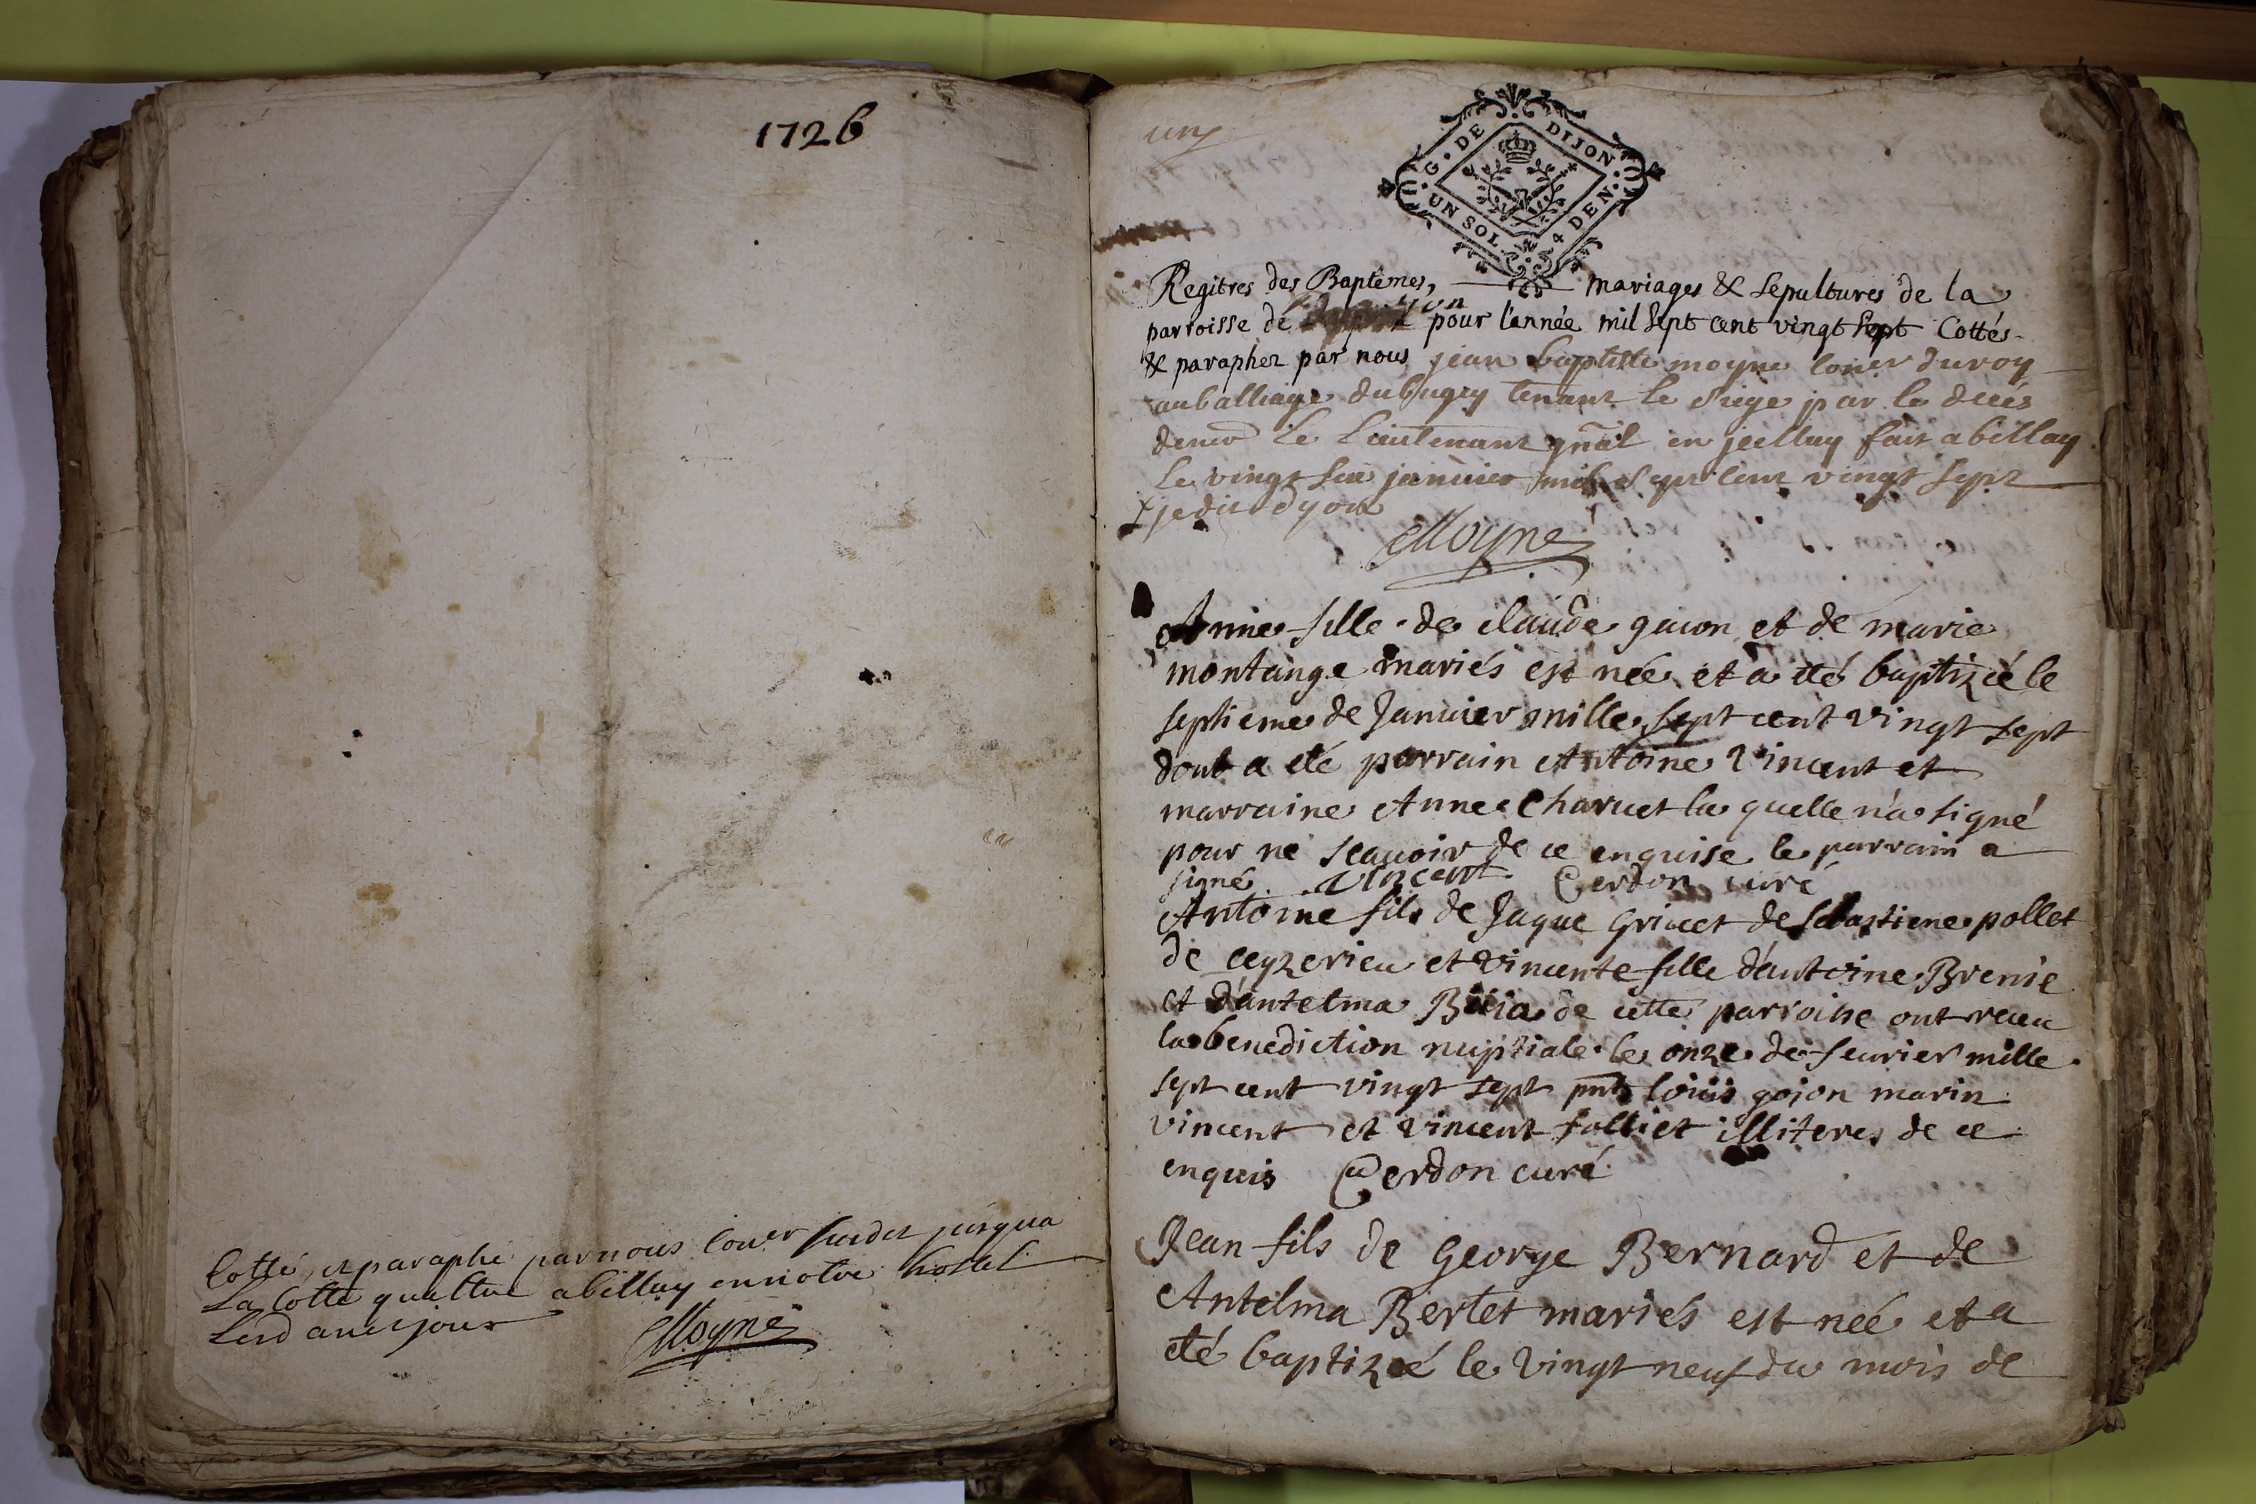 1726
Cotté et paraphé par nous Coner susdit jusqua
La Cotte quattre a bellay en notre hostel
Lesd an et jour
Moyne
un
G · DE DIJON · UN SOL 4 DEN ·
Regitres des Baptêmes, mariages & sepultures de la
parroisse de pour l'année mil sept cent vingt sept Cottés
& paraphez par nous jean baptiste moyne Coner du roy
au balliage du bugey tenant le siege par le decés
de le Lieutenant gnãl en jcelluy fait a bellay
le vingt janvier mil sept cent vingt sept
je dit dyon
Moyne
Anne fille de claude guion et de marie
montange mariés est née et a eté baptizeé le
septieme de Januier mille sept cent vingt sept
dont a eté parrain Antoine Vincent et
marraine Anne Charuet la quelle n'a signé
pour ne scauoir de ce enquise le parrain a
signé Vincent Cerdon curé
Antoine fils de Jaque Griuet de Sebastiene pollet
de ceyzerieu et vincente fille d'antoine Brenie
et d'antelma de cette parroisse ont receu
la benediction nuptiale le onze de feurier mille
sept cent vingt sept pnts loüis gojon marin
vincent et vincent folliet illiteres de ce
enquis Cerdon curé
Jean fils de George Bernard et de
Antelma Bertet mariés est née et a
eté baptizeé le vingt neuf du mois de